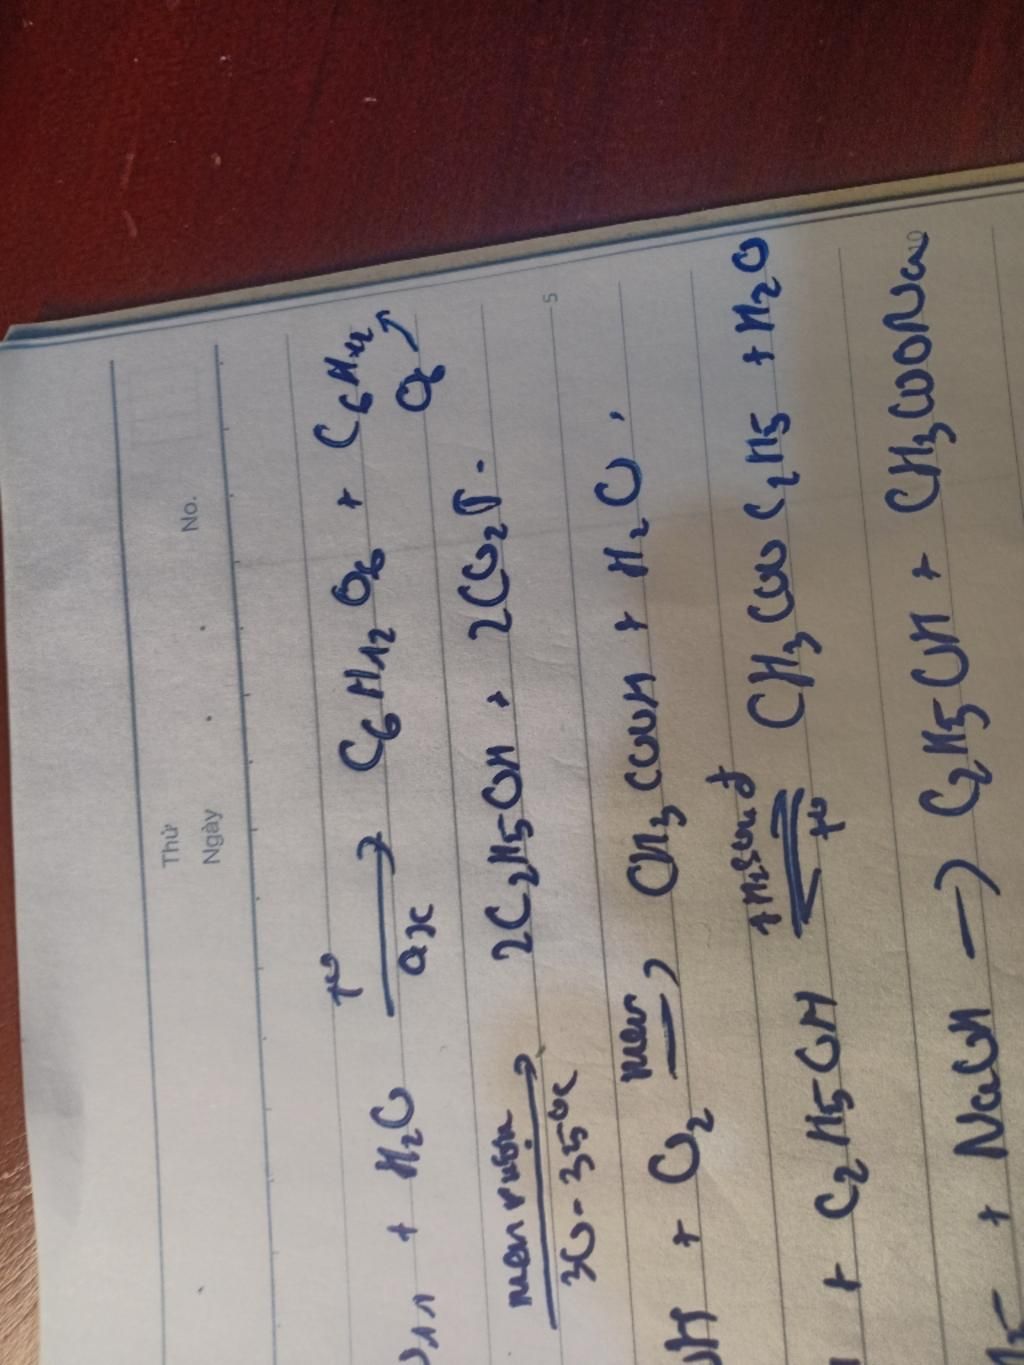 Thứ
Ngày No.
11 + H2O t° → ax C6H12O6 + C6H12
O6
men rượu → 30-35°C 2C2H5OH + 2CO2↑.
5
OH + O2 men → CH3COOH + H2O.
+ C2H5OH +H2SO4 đ ⇌ t° CH3COOC2H5 + H2O
10
H5 + NaOH → C2H5OH + CH3COONa